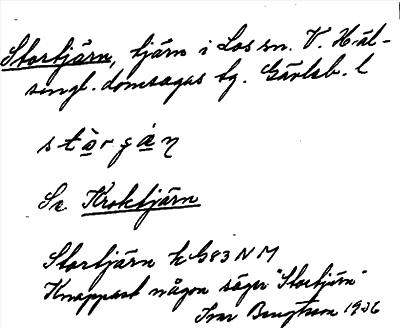 Stortjärn, tjärn i Los sn. V. Häl-
singl. domsagas tg. Gävleb. l
stòrgán
Se Kroktjärn
Stortjärn k G83 N M
Knappast någon säger "Stortjärn"
Ivar Bengtsson 1936